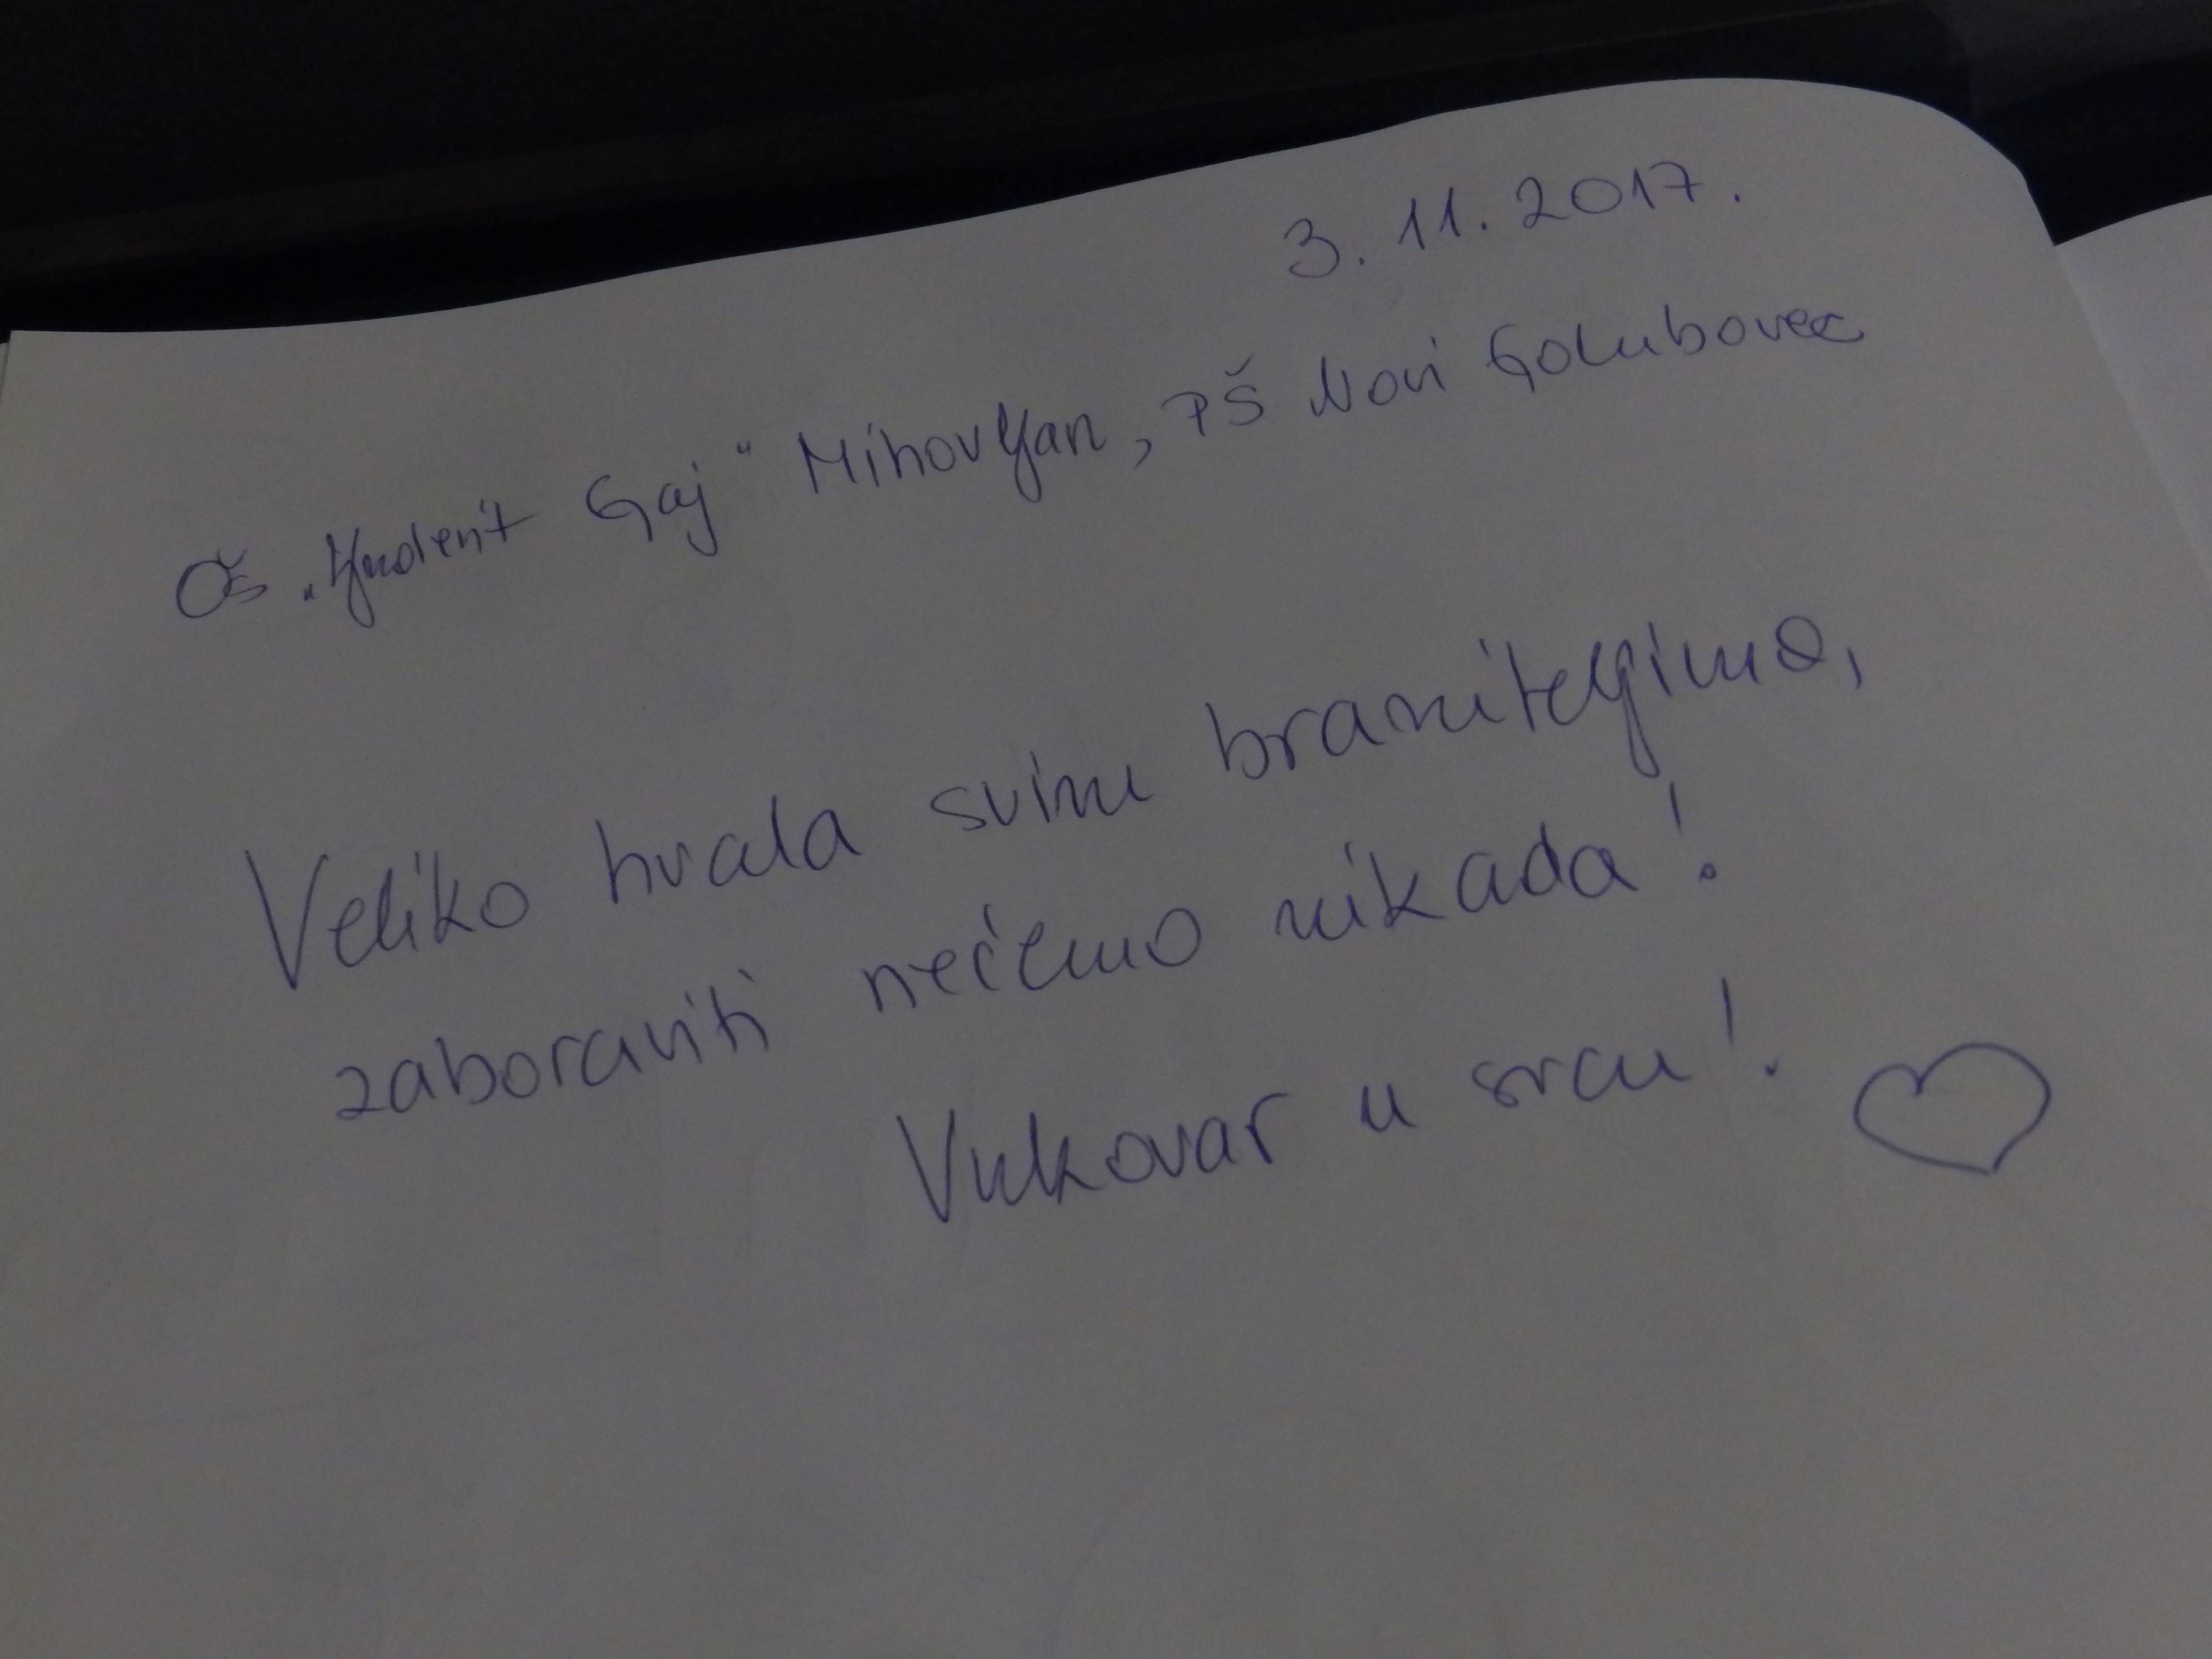 3. 11. 2017.
OŠ „Ljudevit Gaj" Mihovljan, PŠ Novi Golubovec
Veliko hvala svim braniteljima,
zaboraviti nećemo nikada!
Vukovar u srcu!